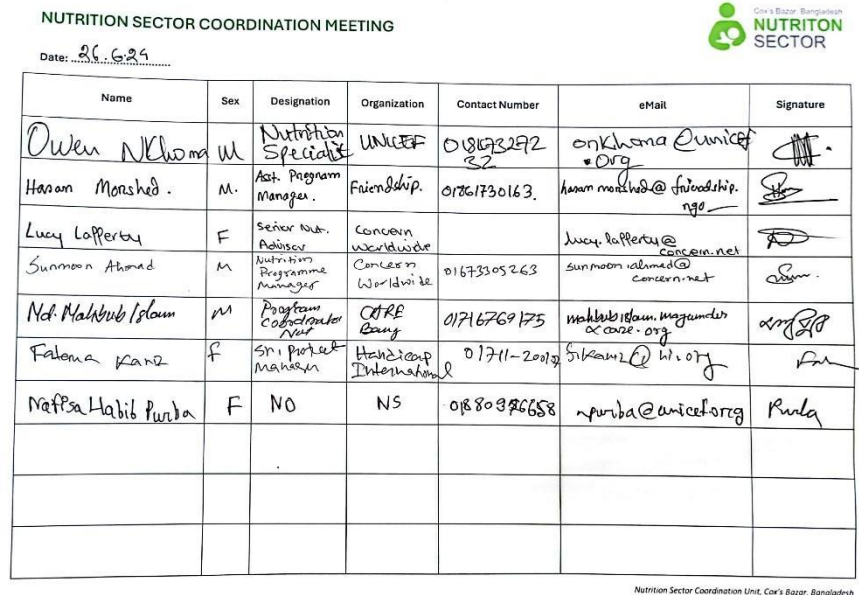 Cox's Bazar, Bangladesh
NUTRITON
SECTOR
NUTRITION SECTOR COORDINATION MEETING
Date: 26.6.24
Name Sex Designation Organization Contact Number eMail Signature
Owen Nkhoma M Nutrition Specialist UNICEF onkhoma@unicef.org
Hasan Morshed. M. Asst. Program Manager. Friendship. 01861730163. hasan morshed@friendship.ngo
Lucy Lafferty F Senior Nut. Advisor Concern Worldwide lucy.lafferty@concern.net
Sunmoon Ahmad M Nutrition Programme Manager Concern Worldwide 01673305263 sunmoon.ahmad@concern.net
Md. Mahbub Islam M Program Coordinator Nut CARE 01716769175 mahbub islam.magumder care.org
Fatema Kanz F Sr. Project Manager Handicap International f.kanz@hi.org
Nafisa Habib Purba F NO NS npurba@unicef.org Purba
Nutrition Sector Coordination Unit, Cox's Bazar, Bangladesh